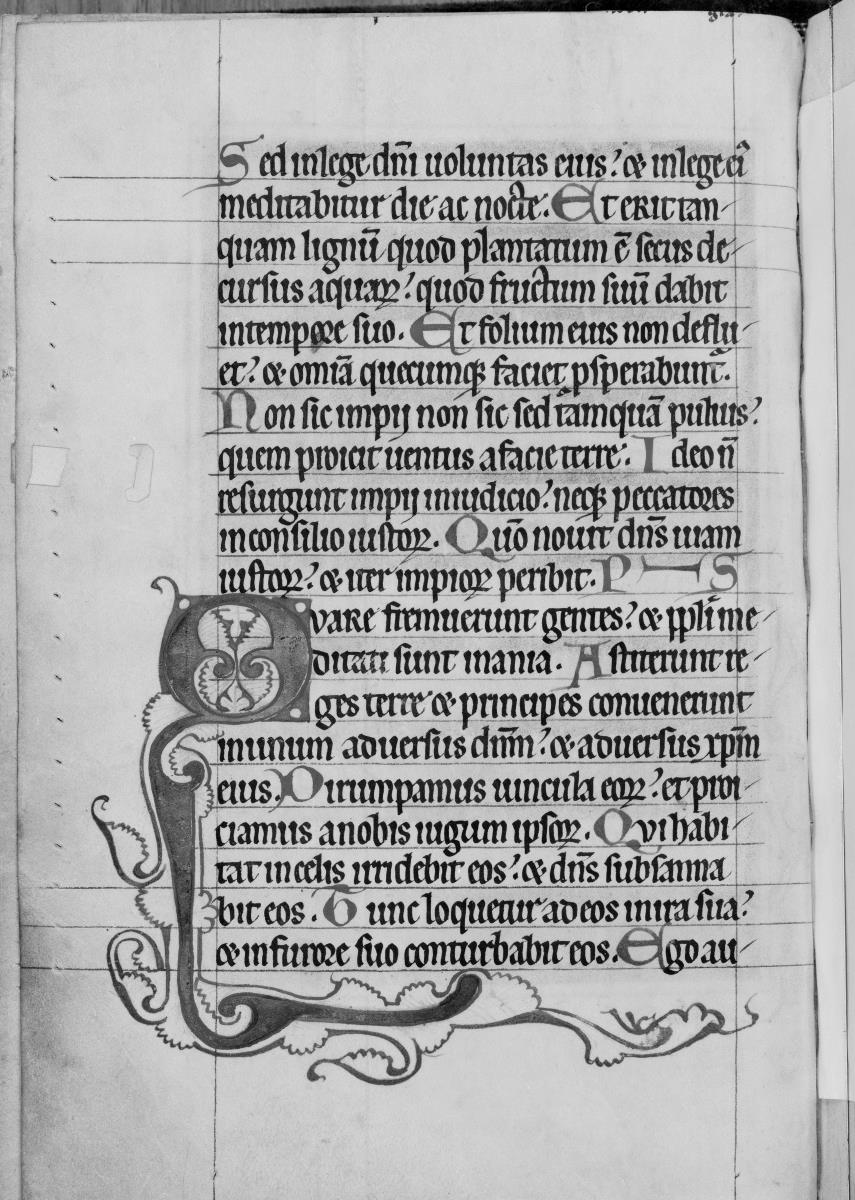 Sed inlege dn̄i uoluntas eius? ⁊ inlege ei᷒
meditabitur die ac nocte. Et erit tan-
quam lignū quod plantatum ē secus de-
cursus aquaꝝ? quod fructum suū dabit
intempore suo. Et folium eius non deflu-
et? ⁊ omīa quecumqꝫ faciet ꝓsperabunt᷑.
Non sic impij non sic sed tamquā puluis?
quem proicit uentus a facie terre. Ideo n̄
resurgunt impij iniudicio? neqꝫ peccatores
inconsilio iustoꝝ. Quō nouit dn̄s uiam
iustoꝝ? ⁊ iter impioꝝ peribit. PS
Quare fremuerunt gentes? ⁊ ppl̄i me-
ditati sunt inania. Astiterunt re-
ges terre ⁊ principes conuenerunt
inunum aduersus dnm̄? ⁊ aduersus xpm̄
eius. Dirumpamus uincula eoꝝ? et proi-
ciamus anobis iugum ipsoꝝ. Qui habi-
tat incelis irridebit eos? ⁊ dn̄s subsanna
bit eos. Tunc loquetur ad eos inira sua?
⁊ infurore suo conturbabit eos. Ego au-